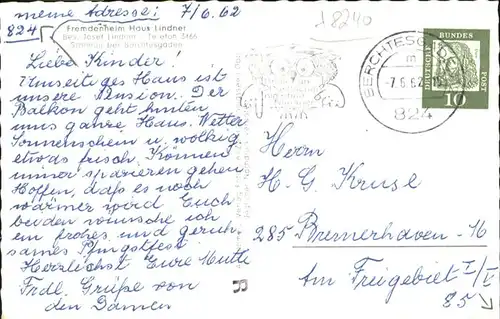 meine Adresse: 7/6.62
824
Fremdenheim Haus Lindner
Bes. Josef Lindner Telefon 3466
bei Berchtesgaden
Liebe Kinder!
Umseitiges Haus ist
unsere Pension. Der
Balkon geht hinten
ums ganze Haus. Wetter
Sonnenschein u. wolkig
etwas frisch. Können
immer spazieren gehen
Hoffen, daß es noch
wärmer wird. Euch
beiden wünsche ich
ein frohes und geruh-
sames Pfingstfest
Herzlichst Eure Mutti
Frdl. Grüße von
den Damen
8240
BERCHTESGADEN
m
-7.6.62
824
DEUTSCHE BUNDESPOST
10
Herrn
H. G. Kruse
285 Bremerhaven-M
Am Freigebiet I/I
85